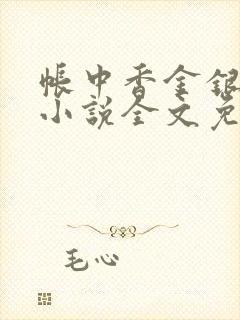 帐中香金银
小说全文免
毛心